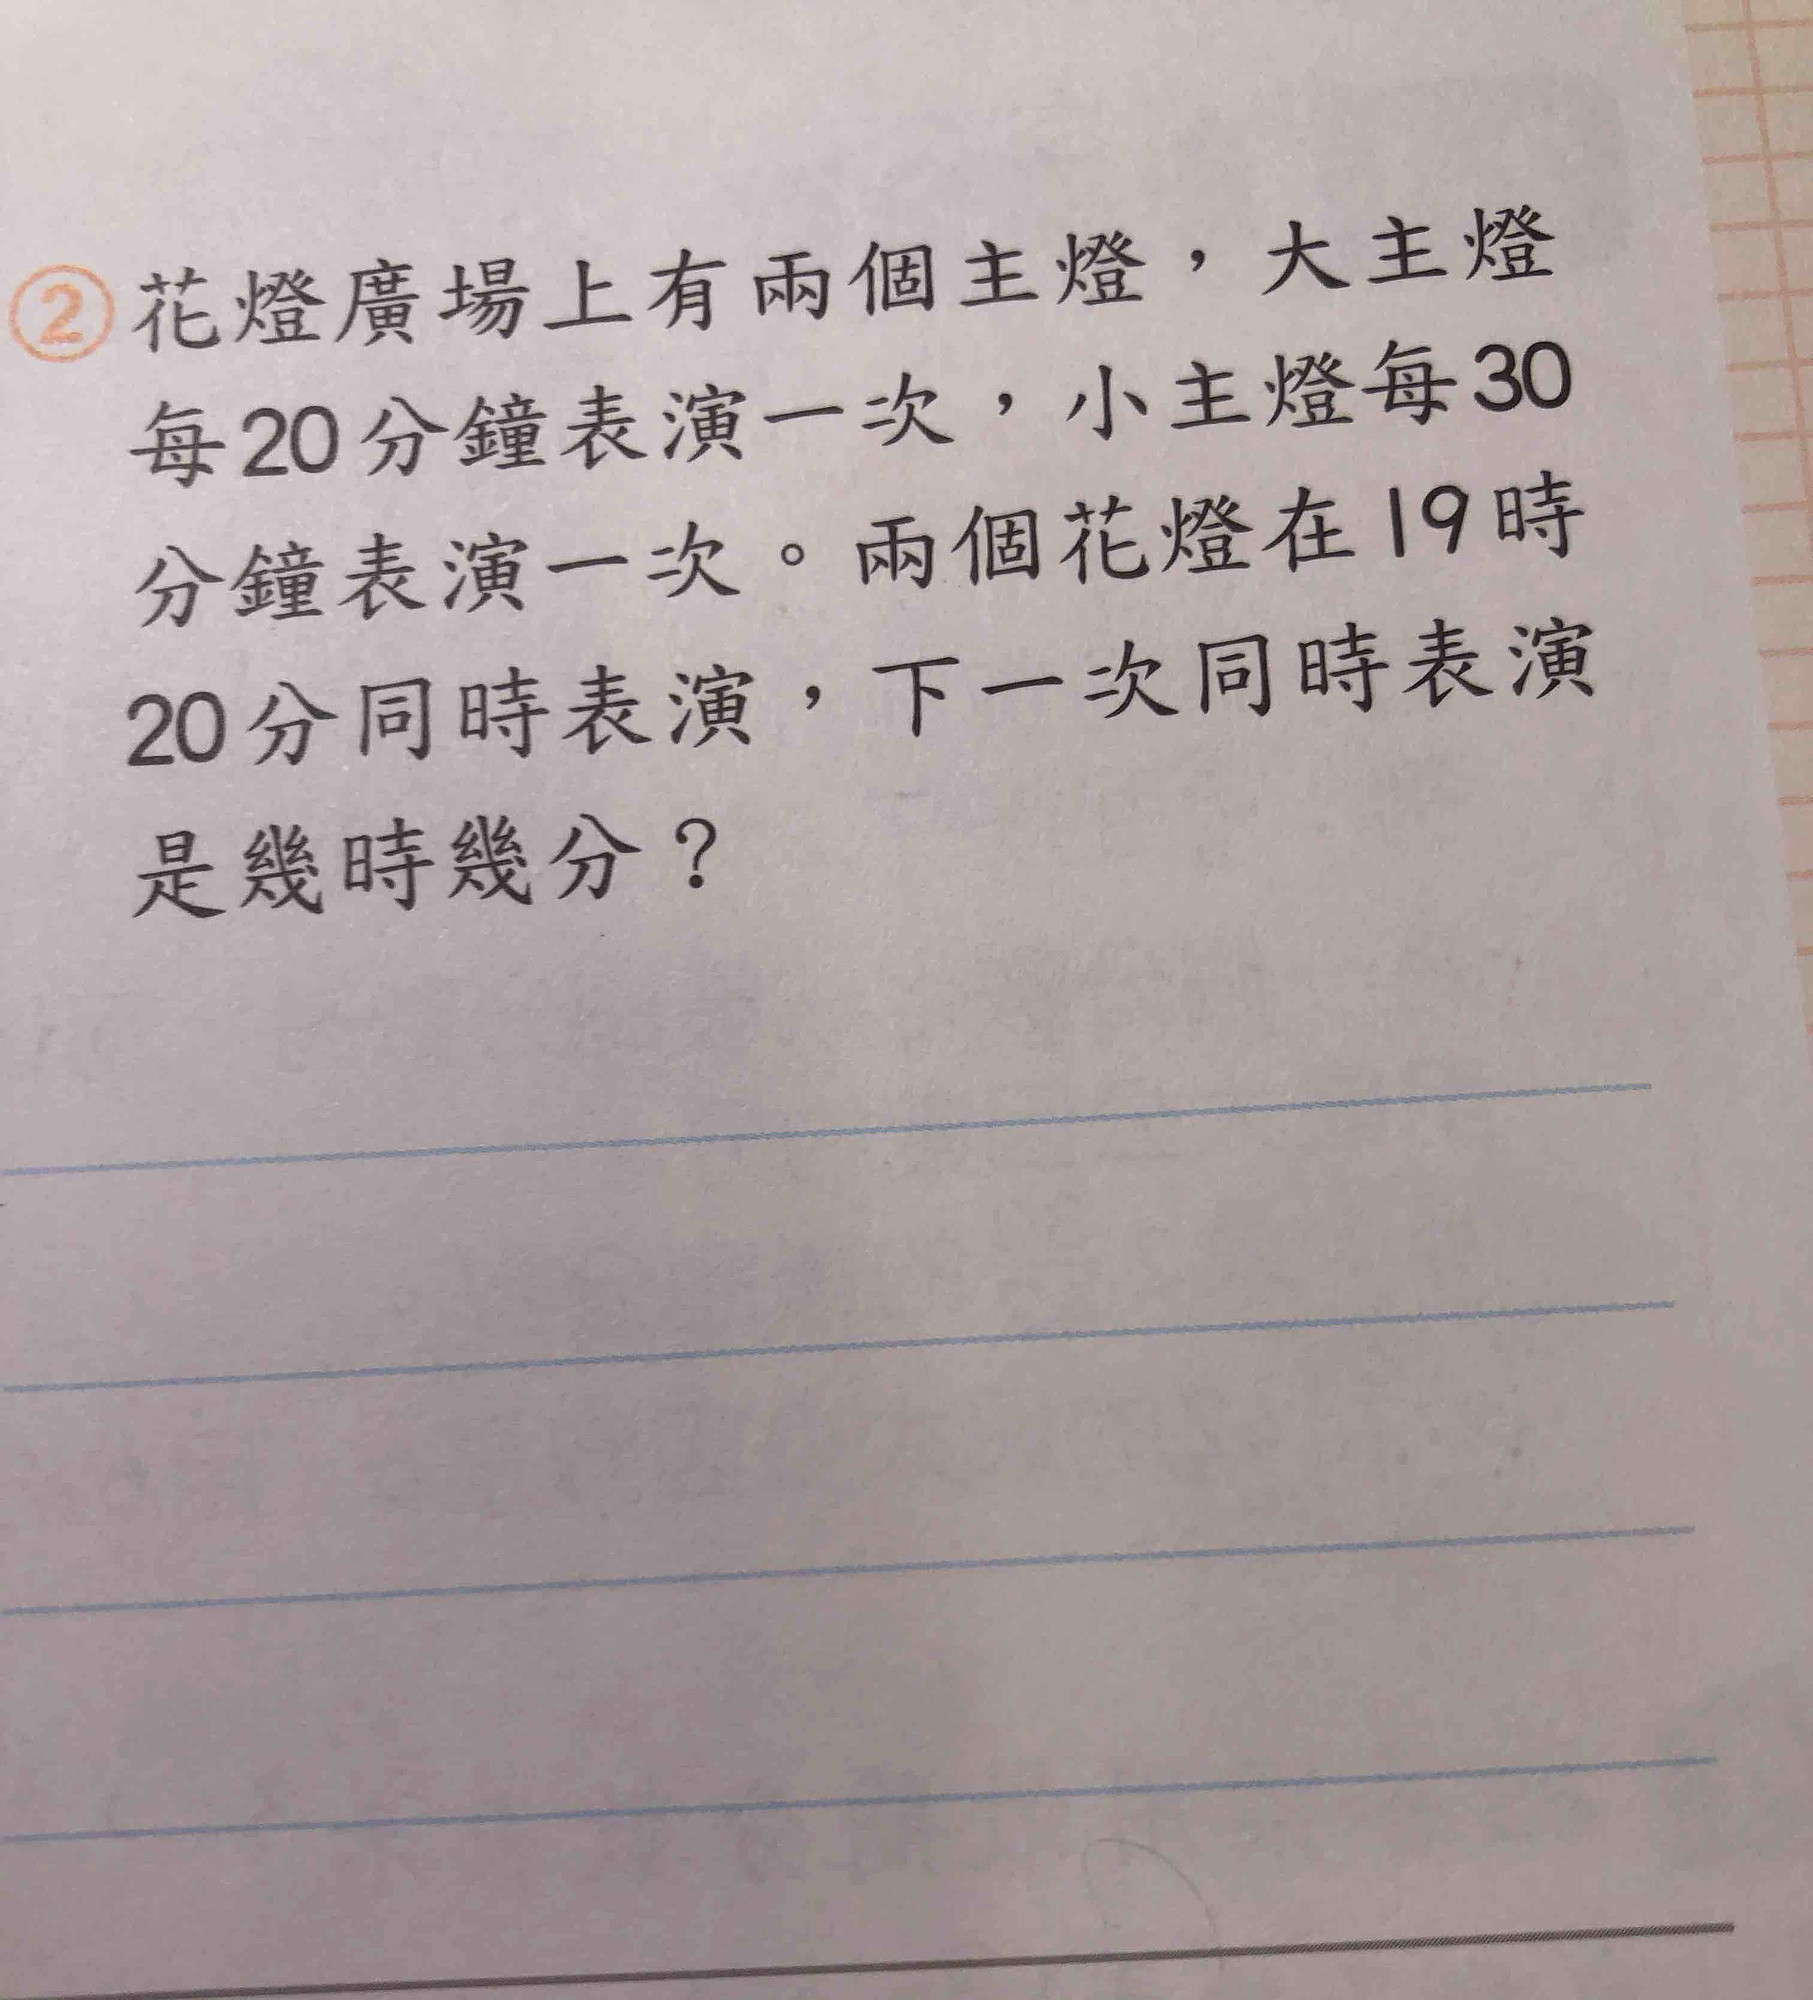 ② 花燈廣場上有兩個主燈，大主燈
每20分鐘表演一次，小主燈每30
分鐘表演一次。兩個花燈在19時
20分同時表演，下一次同時表演
是幾時幾分？